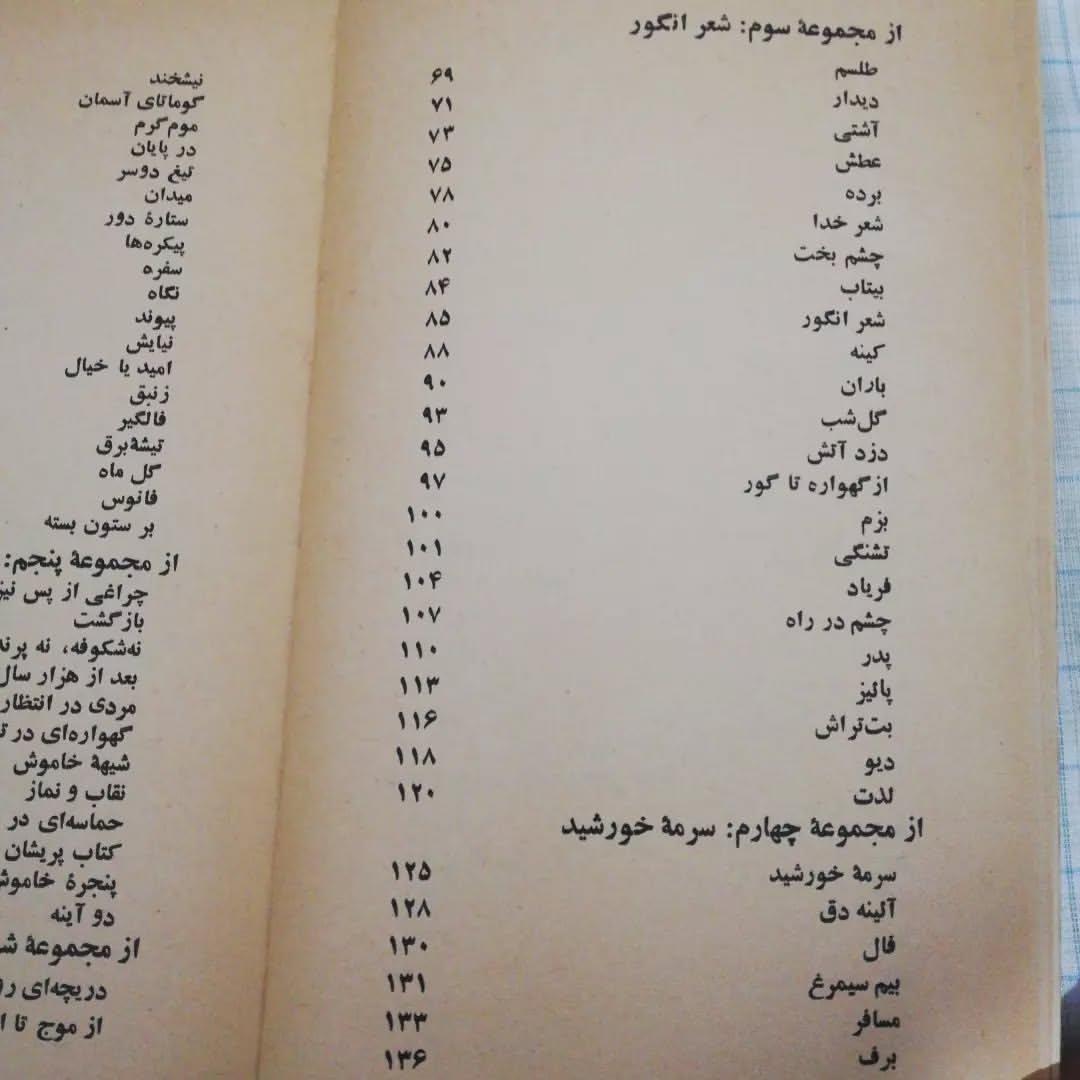 از مجموعهٔ سوم: شعر انگور
طلسم ۶۹
دیدار ۷۱
آشتی ۷۳
عطش ۷۵
برده ۷۸
شعر خدا ۸۰
چشم بخت ۸۲
بیتاب ۸۴
شعر انگور ۸۵
کینه ۸۸
باران ۹۰
گل‌شب ۹۳
دزد آتش ۹۵
از گهواره تا گور ۹۷
بزم ۱۰۰
تشنگی ۱۰۱
فریاد ۱۰۴
چشم در راه ۱۰۷
پدر ۱۱۰
پائیز ۱۱۳
بت‌تراش ۱۱۶
دیو ۱۱۸
لذت ۱۲۰
از مجموعهٔ چهارم: سرمهٔ خورشید
سرمهٔ خورشید ۱۲۵
آئینه دق ۱۲۸
فال ۱۳۰
بیم سیمرغ ۱۳۱
مسافر ۱۳۳
برف ۱۳۶
نیشخند
گوماتای آسمان
موم‌گرم
در پایان
تیغ دوسر
میدان
ستارهٔ دور
پیکره‌ها
سفره
نگاه
پیوند
نیایش
امید یا خیال
زنبق
فالگیر
تیشهٔ‌برق
گل ماه
فانوس
بر ستون بسته
از مجموعهٔ پنجم:
چراغی از پس
بازگشت
نه‌شکوفه، نه
بعد از هزار سال
مردی در انتظار
گهواره‌ای در
شیههٔ خاموش
نقاب و نماز
حماسه‌ای در
کتاب پریشان
پنجرهٔ
دو آینه
از مجموعهٔ
دریچه‌ای
از موج تا